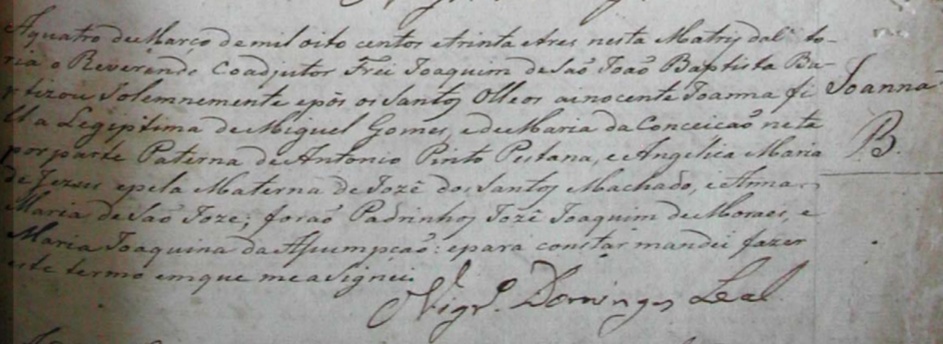 Aquatro de Março de mil oito centos etrinta etres nesta Matris dal.ª to-
ria o Reverendo Coadjutor Frei Joaquim de São João Baptista Ba-
ptizou Solemnemente epôs os Santos Olleos ainocente Joanna fi
lla Legiptima de Miguel Gomes, ede Maria da Conceicaõ neta
por parte Paterna de Antonio Pinto Pestana, e Angelica Maria
de Jezus epela Materna de Jozê dos Santos Machado, e Anna
Maria de Saõ Joze; foraõ Padrinhos Jozê Joaquim de Moraes, e
Maria Joaquina da Assumpçaõ: epara constar mandei fazer
este termo emque measignei.
Vigr.º Domingos Leal
Joanna
B.